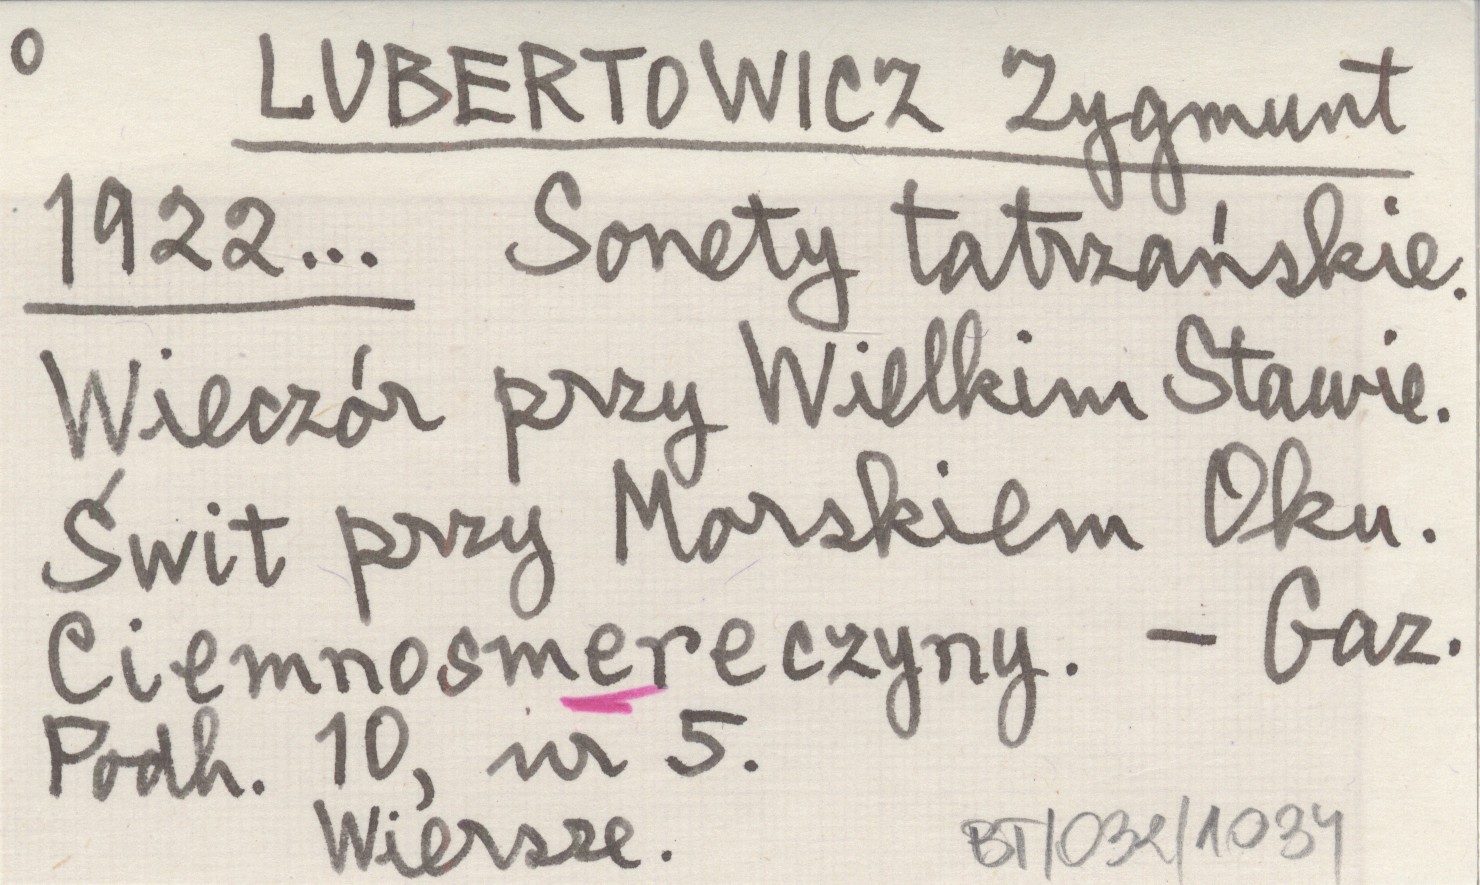 o LUBERTOWICZ Zygmunt
1922... Sonety tatrzańskie.
Wieczór przy Wielkim Stawie.
Świt przy Morskiem Oku.
Ciemnosmereczyny. – Gaz.
Podh. 10, nr 5.
Wiersze.
BT/032/1034